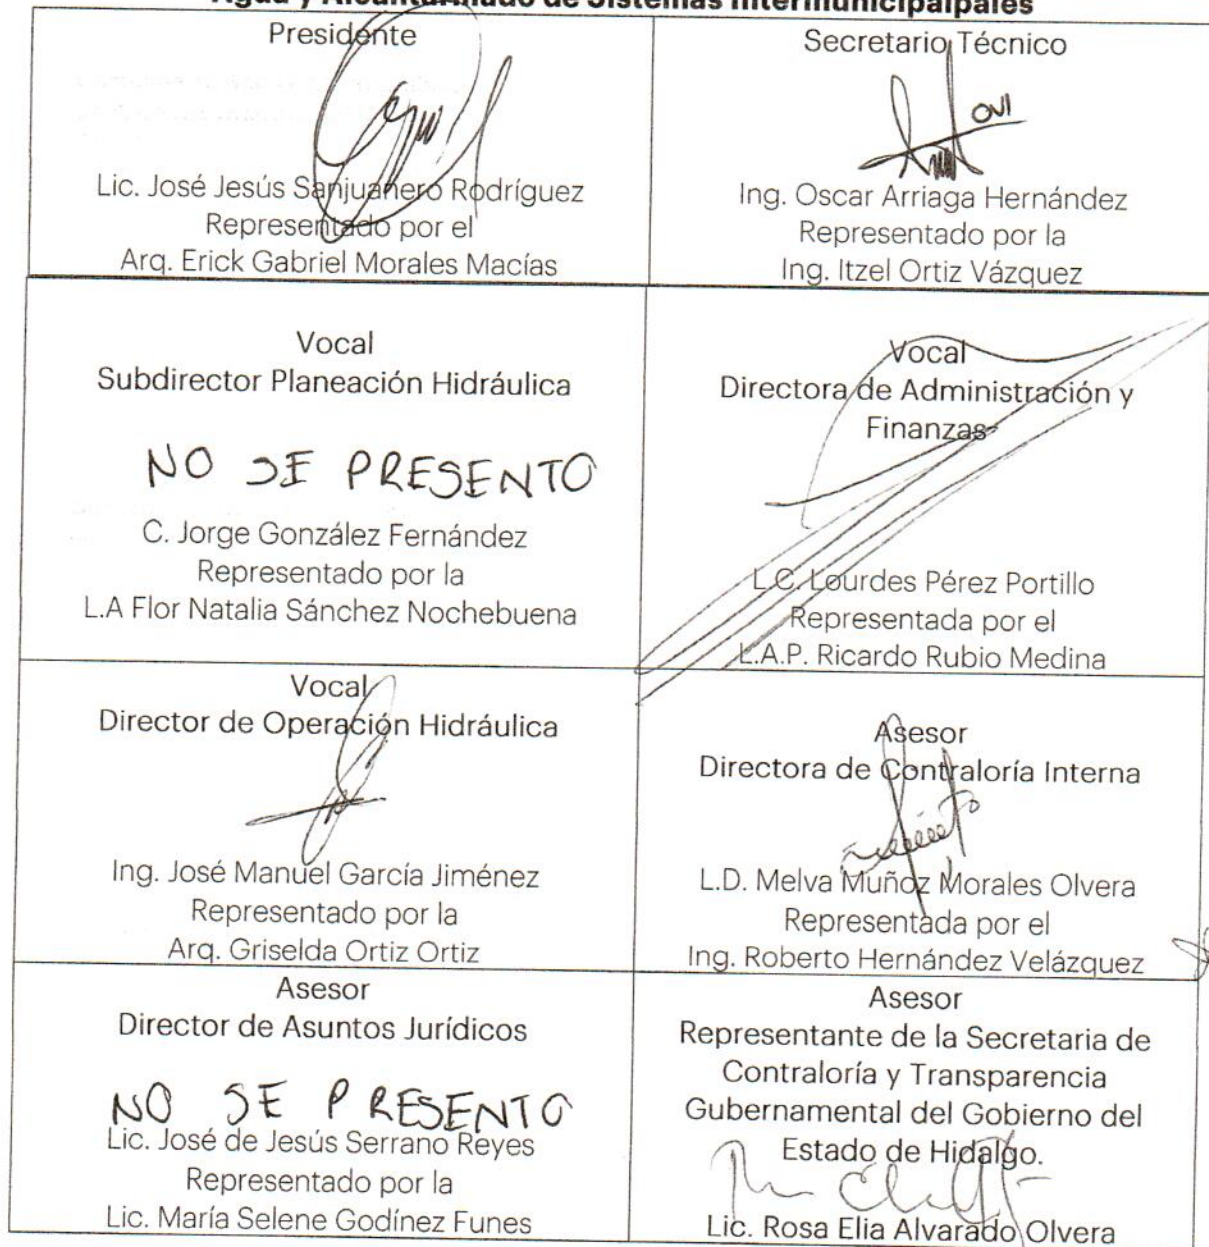 Agua y Alcantarillado de Sistemas Intermunicipalpales
Presidente
Lic. José Jesús Sanjuanero Rodríguez
Representado por el
Arq. Erick Gabriel Morales Macías
Secretario Técnico
OVI
Ing. Oscar Arriaga Hernández
Representado por la
Ing. Itzel Ortiz Vázquez
Vocal
Subdirector Planeación Hidráulica
NO SE PRESENTO
C. Jorge González Fernández
Representado por la
L.A Flor Natalia Sánchez Nochebuena
Vocal
Directora de Administración y
Finanzas
L.C. Lourdes Pérez Portillo
Representada por el
L.A.P. Ricardo Rubio Medina
Vocal
Director de Operación Hidráulica
Ing. José Manuel García Jiménez
Representado por la
Arq. Griselda Ortiz Ortiz
Asesor
Directora de Contraloría Interna
L.D. Melva Muñoz Morales Olvera
Representada por el
Ing. Roberto Hernández Velázquez
Asesor
Director de Asuntos Jurídicos
NO SE PRESENTO
Lic. José de Jesús Serrano Reyes
Representado por la
Lic. María Selene Godínez Funes
Asesor
Representante de la Secretaria de
Contraloría y Transparencia
Gubernamental del Gobierno del
Estado de Hidalgo.
Lic. Rosa Elia Alvarado Olvera